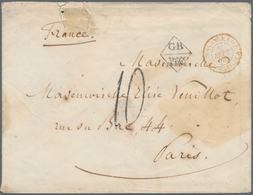 France.
GB
10
Mademoiselle
Mademoiselle Elise Veuillot
rue du Bac 44
Paris.